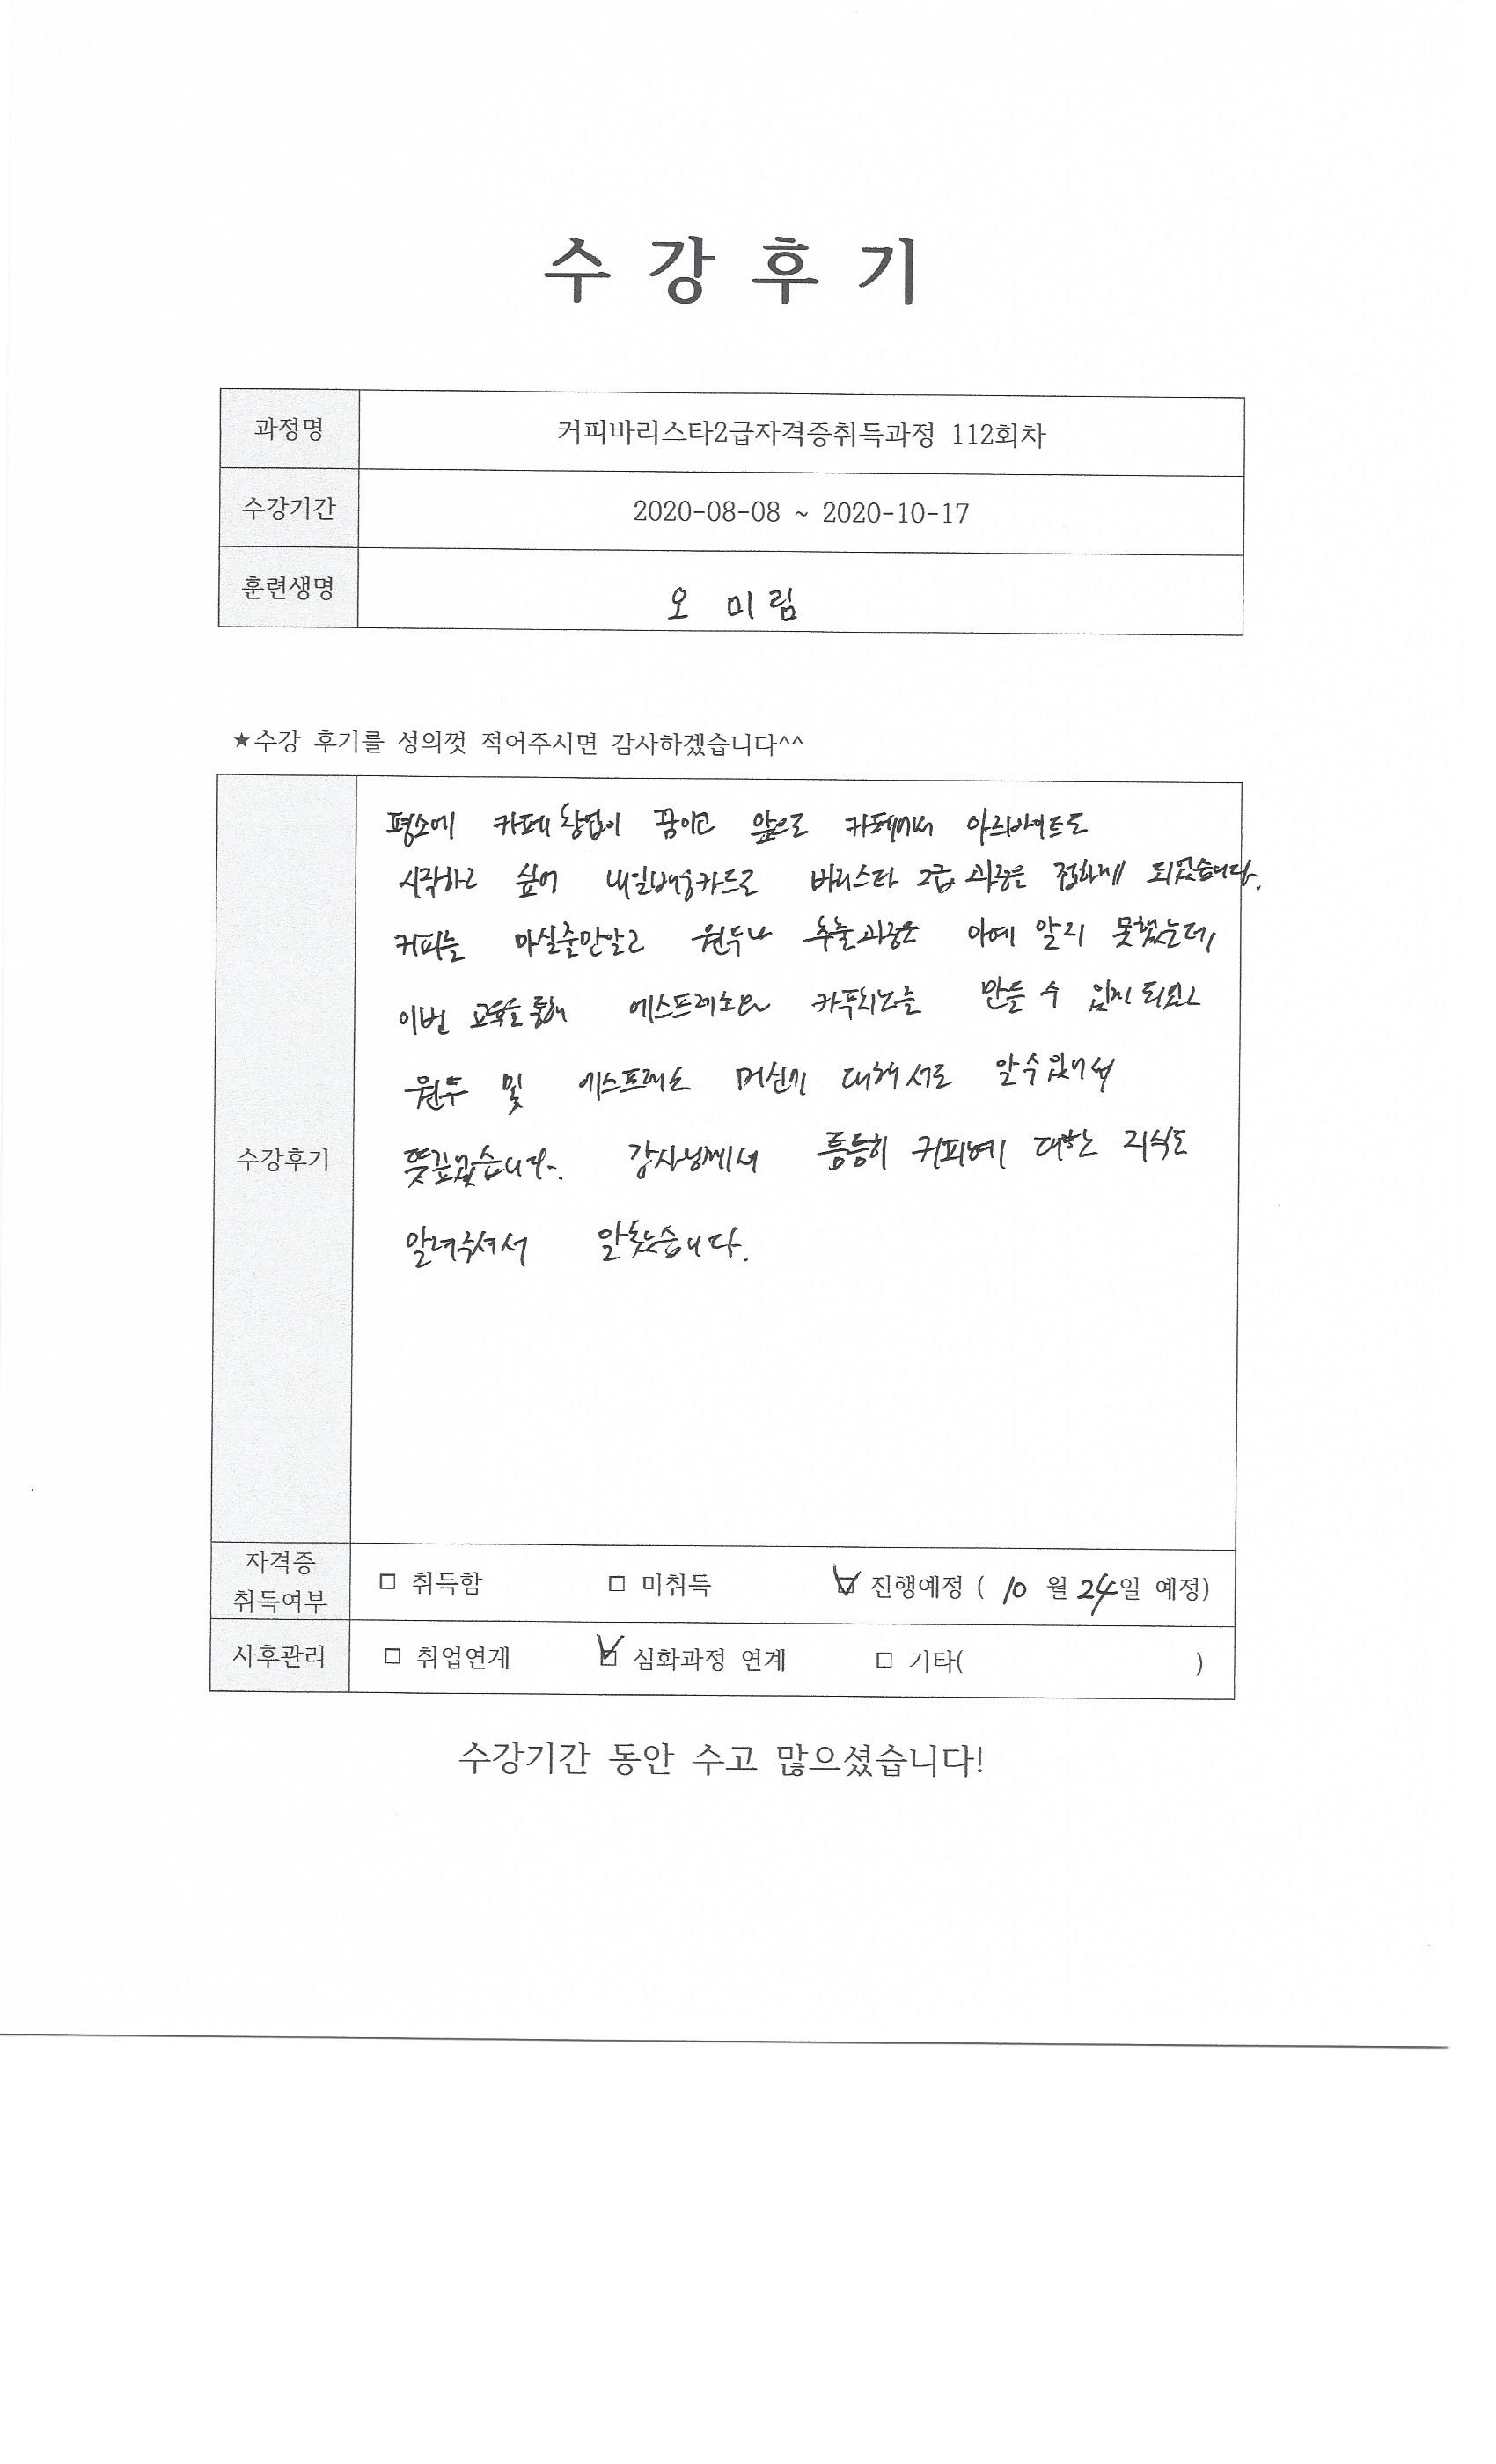 수 강 후 기
과정명 커피바리스타2급자격증취득과정 112회차
수강기간 2020-08-08 ~ 2020-10-17
훈련생명 오 미림
★수강 후기를 성의껏 적어주시면 감사하겠습니다^^
수강후기
평소에 카페 창업이 꿈이고 앞으로 카페에서 아르바이트도
시작하고 싶어 내일배움카드로 바리스타 2급 과정을 접하게 되었습니다.
커피는 마실줄만알고 원두나 추출과정은 아예 알지 못했는데,
이번 교육을 통해 에스프레소와 카푸치노를 만들 수 있게 되었고
원두 및 에스프레소 머신에 대해서도 알수있어서
뜻깊었습니다. 강사님께서 틈틈히 커피에 대한 지식도
알려주셔서 알찼습니다.
자격증
취득여부 □ 취득함 □ 미취득 ☑ 진행예정 ( 10 월 24일 예정)
사후관리 □ 취업연계 ☑ 심화과정 연계 □ 기타( )
수강기간 동안 수고 많으셨습니다!